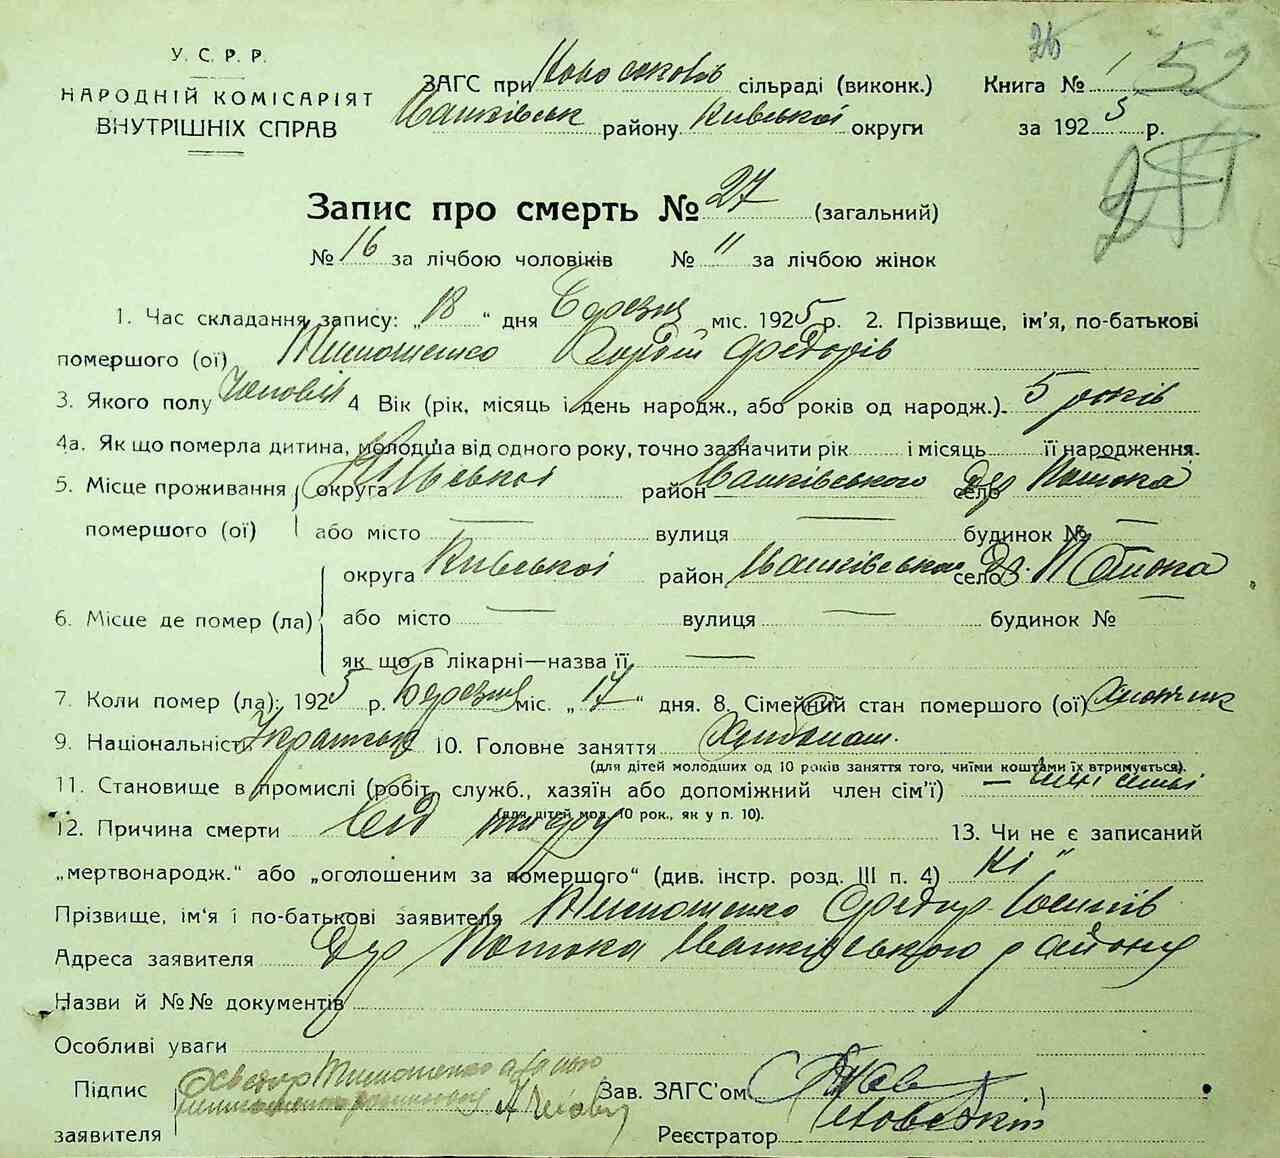 У. С. Р. Р.
НАРОДНІЙ КОМІСАРІЯТ
ВНУТРІШНІХ СПРАВ
26
ЗАГС при сільраді (виконк.)
району Київської округи
Книга № 1 52
за 1925 р.
Запис про смерть № 27 (загальний)
№ 16 за лічбою чоловіків № " за лічбою жінок
1. Час складання запису: „18" дня Березня міс. 1925 р. 2. Прізвище, ім'я, по-батькові
помершого (ої) Тимошенко Федорів
3. Якого полу Чоловік 4 Вік (рік, місяць і день народж., або років од народж.). 5 років
4а. Як що померла дитина, молодша від одного року, точно зазначити рік і місяць її народження.
5. Місце проживання округа Київської район Іванківського село Дер Потока
помершого (ої) або місто — вулиця — будинок № —
округа Київської район Іванківського село Д. Потока
6. Місце де помер (ла) або місто — вулиця — будинок № —
як що в лікарні—назва її —
7. Коли помер (ла): 1925 р. Березня міс. „17" дня. 8. Сімейний стан помершого (ої) Хлопчик
9. Національність Українець 10. Головне заняття Хлібопаш.
(для дітей молодших од 10 років заняття того, чиїми коштами їх втримується).
11. Становище в промислі (робіт, служб., хазяїн або допоміжний член сім'ї) — член семьї
(для дітей мол. 10 рок., як у п. 10).
12. Причина смерти Від тифу 13. Чи не є записаний
„мертвонародж." або „оголошеним за помершого" (див. інстр. розд. III п. 4) Ні"
Прізвище, ім'я і по-батькові заявителя Тимошенко Федор
Адреса заявителя Дер Потока Іванківського району
Назви й №№ документів
Особливі уваги
Підпис Тимошенко Зав. ЗАГС'ом
заявителя Реєстратор